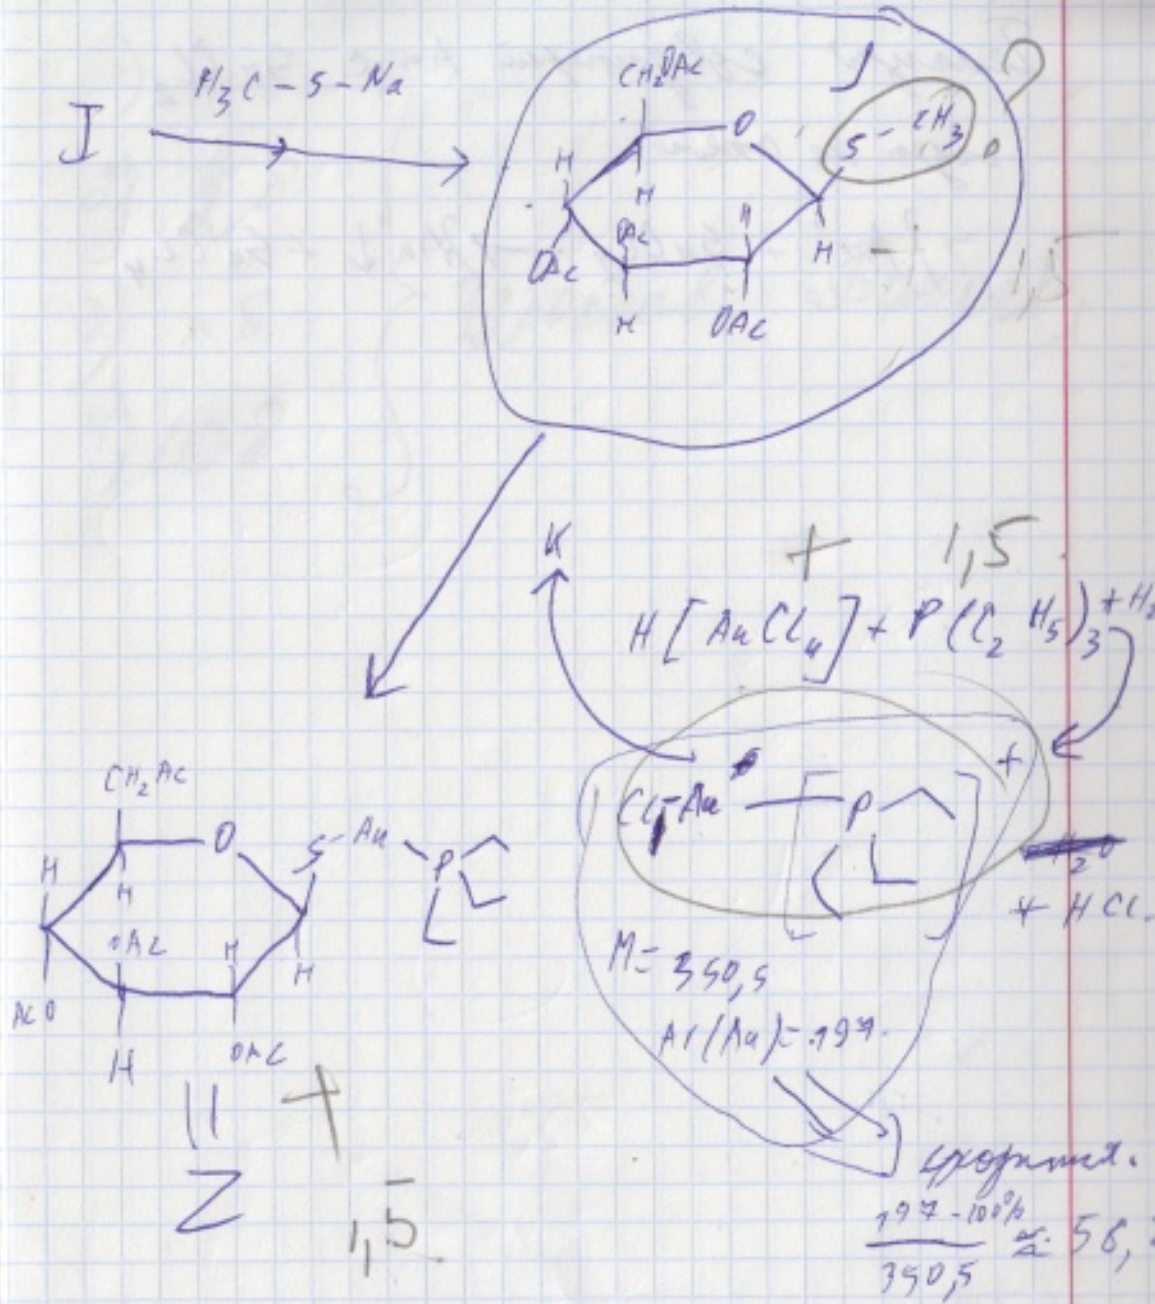 I
H₃C - S - Na
J
?
CH₂OAc
O
S - CH₃
H
H
OAc
H
H
OAc
H
OAc
1,5
K
+ 1,5
H[AuCl₄] + P(C₂H₅)₃ + H₂
Cl-Au
P
+
+ HCl.
M = 350,5
Ar(Au) = 197.
сходится.
197 - 100%
350,5
≈ 56,
CH₂Ac
O
S - Au
P
H
H
OAc
H
H
AcO
H
OAc
+
1,5
Z